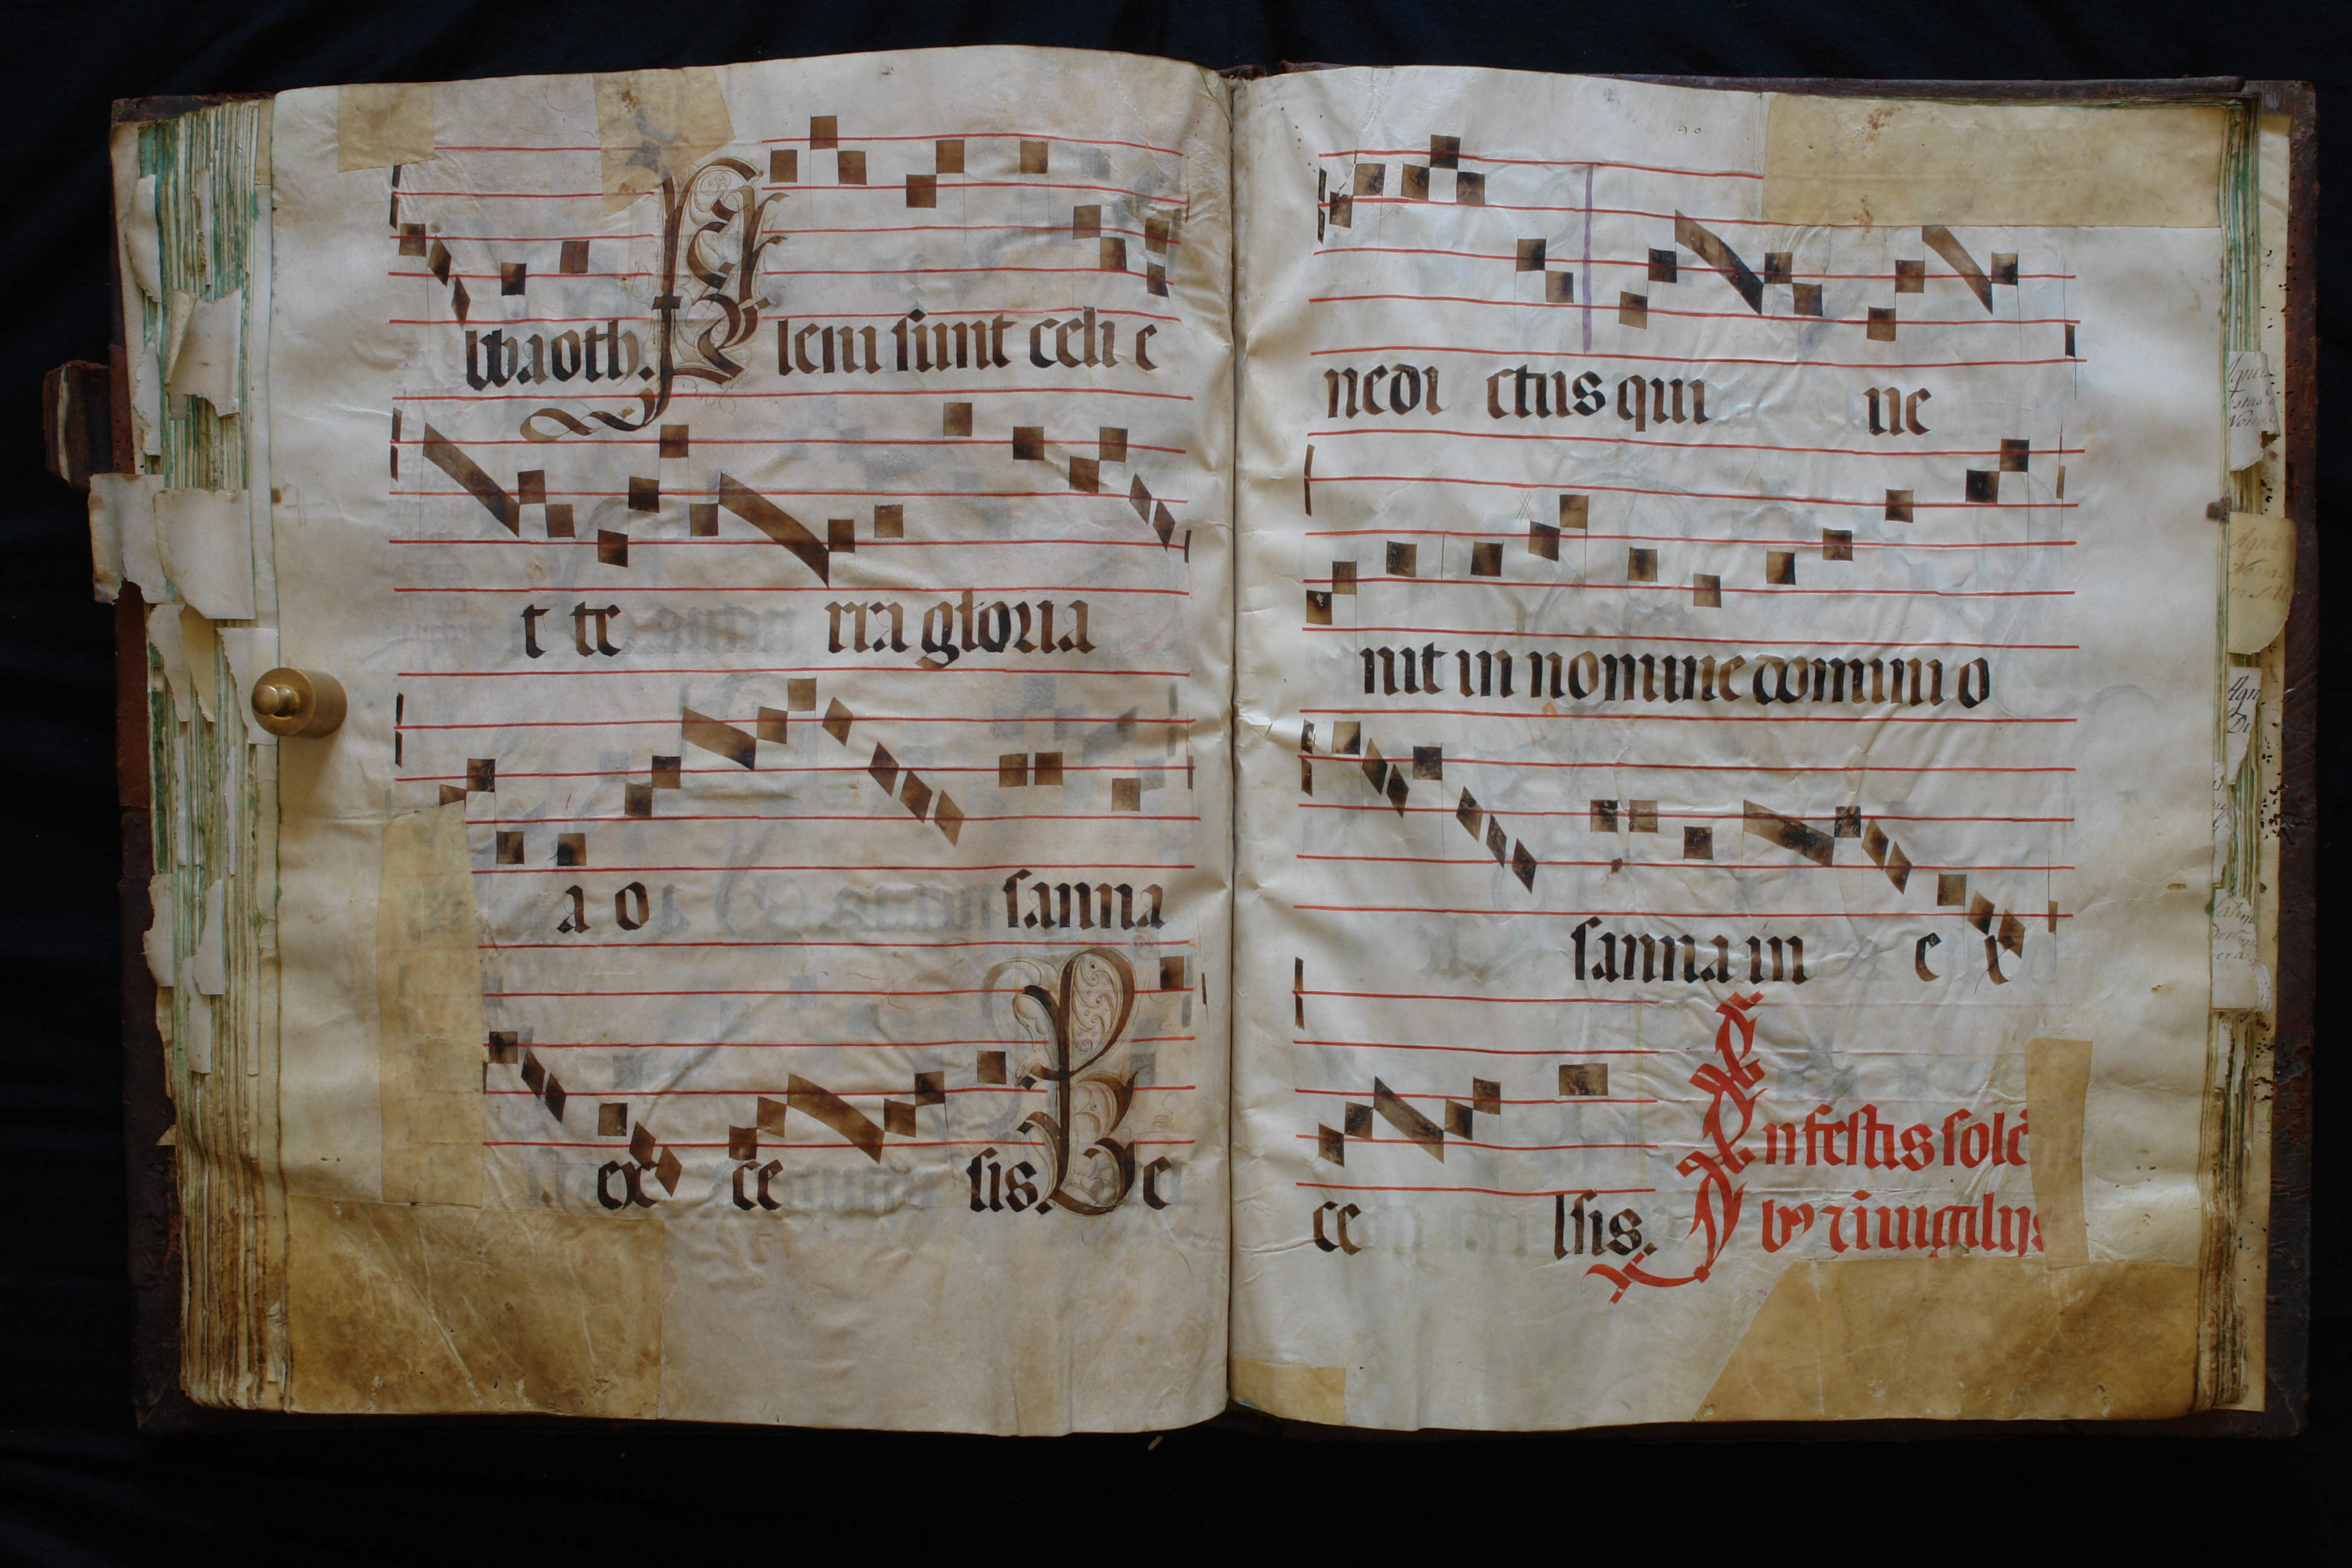 bbaoth. Pleni sunt celi e
t te rra gloria
a o sanna
ex ce lsis. Be
nedi ctus qui ve
nit in nomine domini o
sanna in e x
ce lsis. In festis solē